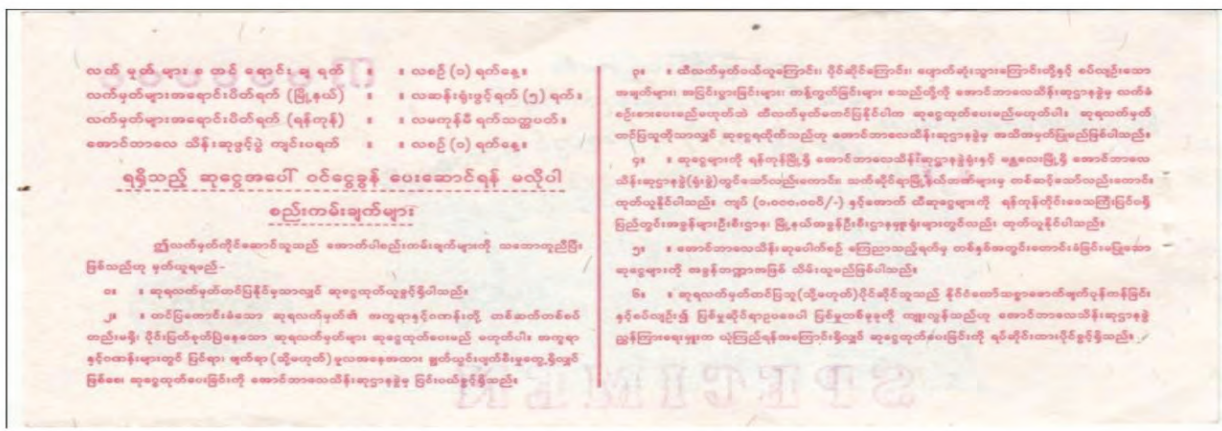 လက် မှတ် များ စ တင် ရောင်း ချ ရက် ။ ။ လစဉ် (၁) ရက်နေ့။
လက်မှတ်များအရောင်းပိတ်ရက် (မြို့နယ်) ။ ။ လဆန်းရုံးဖွင့်ရက် (၅) ရက်။
လက်မှတ်များအရောင်းပိတ်ရက် (ရန်ကုန်) ။ ။ လမကုန်မီ ရက်သတ္တပတ်။
အောင်ဘာလေ သိန်းဆုဖွင့်ပွဲ ကျင်းပရက် ။ ။ လစဉ် (၁) ရက်နေ့။
ရရှိသည့် ဆုငွေအပေါ် ဝင်ငွေခွန် ပေးဆောင်ရန် မလိုပါ
စည်းကမ်းချက်များ
ဤလက်မှတ်ကိုင်ဆောင်သူသည် အောက်ပါစည်းကမ်းချက်များကို သဘောတူညီပြီး
ဖြစ်သည်ဟု မှတ်ယူရမည်-
၁။ ။ ဆုရလက်မှတ်တင်ပြနိုင်မှသာလျှင် ဆုငွေထုတ်ယူခွင့်ရှိပါသည်။
၂။ ။ တင်ပြကောင်းခံသော ဆုရလက်မှတ်၏ အက္ခရာနှင့်ဂဏန်းတို့ တစ်ဆက်တစ်စပ်
တည်းမရှိ၊ ပိုင်းဖြတ်စုတ်ပြဲနေသော ဆုရလက်မှတ်များ ဆုငွေထုတ်ပေးမည် မဟုတ်ပါ။ အက္ခရာ
နှင့်ဂဏန်းများတွင် ပြင်ရာ၊ ဖျက်ရာ (သို့မဟုတ်) မူလအနေအထား ချွတ်ယွင်းပျက်စီးမှုတွေ့ရှိလျှင်
ဖြစ်စေ၊ ဆုငွေထုတ်ပေးခြင်းကို အောင်ဘာလေသိန်းဆုဌာနခွဲမှ ငြင်းပယ်ခွင့်ရှိသည်။
၃။ ။ ထီလက်မှတ်ဝယ်ယူကြောင်း၊ ပိုင်ဆိုင်ကြောင်း၊ ပျောက်ဆုံးသွားကြောင်းတို့နှင့် စပ်လျဉ်းသော
အချက်များ၊ အငြင်းပွားခြင်းများ၊ ကန့်ကွက်ခြင်းများ စသည်တို့ကို အောင်ဘာလေသိန်းဆုဌာနခွဲမှ လက်ခံ
စဉ်းစားပေးမည်မဟုတ်ဘဲ ထီလက်မှတ်မတင်ပြနိုင်ပါက ဆုငွေထုတ်ပေးမည်မဟုတ်ပါ။ ဆုရလက်မှတ်
တင်ပြသူကိုသာလျှင် ဆုငွေရထိုက်သည်ဟု အောင်ဘာလေသိန်းဆုဌာနခွဲမှ အသိအမှတ်ပြုမည်ဖြစ်ပါသည်။
၄။ ။ ဆုငွေများကို ရန်ကုန်မြို့ရှိ အောင်ဘာလေသိန်းဆုဌာနခွဲရုံးနှင့် မန္တလေးမြို့ရှိ အောင်ဘာလေ
သိန်းဆုဌာနခွဲ(ရုံးခွဲ)တွင်သော်လည်းကောင်း၊ သက်ဆိုင်ရာမြို့နယ်ဘဏ်များမှ တစ်ဆင့်သော်လည်းကောင်း
ထုတ်ယူနိုင်ပါသည်။ ကျပ် (၁,၀၀၀,၀၀၀ိ/-) နှင့်အောက် ထီဆုငွေများကို ရန်ကုန်တိုင်းဒေသကြီးပြင်ပရှိ
ပြည်တွင်းအခွန်များဦးစီးဌာန၊ မြို့နယ်အခွန်ဦးစီးဌာနမှူးရုံးများတွင်လည်း ထုတ်ယူနိုင်ပါသည်။
၅။ ။ အောင်ဘာလေသိန်းဆုပေါက်စဉ် ကြေညာသည့်ရက်မှ တစ်နှစ်အတွင်းတောင်းခံခြင်းမပြုသော
ဆုငွေများကို အခွန်ဘဏ္ဍာအဖြစ် သိမ်းယူမည်ဖြစ်ပါသည်။
၆။ ။ ဆုရလက်မှတ်တင်ပြသူ(သို့မဟုတ်)ပိုင်ဆိုင်သူသည် နိုင်ငံတော်သစ္စာဖောက်ဖျက်ပုန်ကန်ခြင်း
နှင့်စပ်လျဉ်း၍ ပြစ်မှုဆိုင်ရာဥပဒေပါ ပြစ်မှုတစ်ခုခုကို ကျူးလွန်သည်ဟု အောင်ဘာလေသိန်းဆုဌာနခွဲ
ညွှန်ကြားရေးမှူးက ယုံကြည်ရန်အကြောင်းရှိလျှင် ဆုငွေထုတ်ပေးခြင်းကို ရပ်ဆိုင်းထားပိုင်ခွင့်ရှိသည်။
SPECIMEN